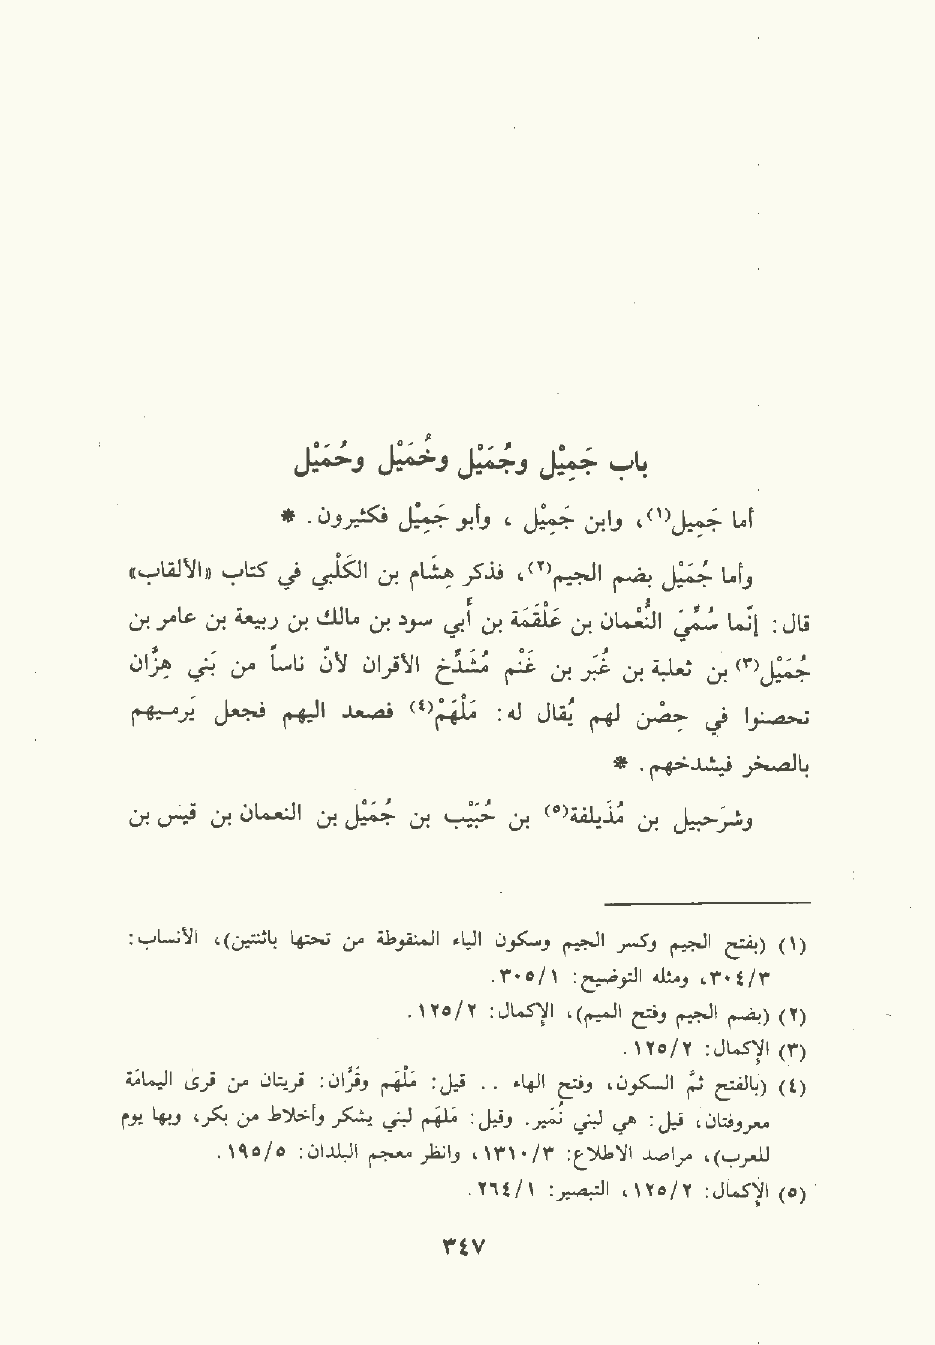 باب جَمِيْل وجُمَيْل وخُمَيْل وحُمَيْل
أما جَمِيل(١)، وابن جَمِيْل ، وأبو جَمِيْل فكثيرون . *
وأما جُمَيْل بضم الجيم(٢)، فذكر هِشَام بن الكَلْبي في كتاب «الألقاب»
قال: إنَّما سُمِّيَ النُّعْمان بن عَلْقَمَة بن أبي سود بن مالك بن ربيعة بن عامر بن
جُمَيْل(٣) بن ثعلبة بن غُبَر بن غَنْم مُشَدَّخ الأقران لأنّ ناساً من بَني هِزَّان
تحصنوا في حِصْن لهم يُقال له: مَلْهَم(٤) فصعد اليهم فجعل يَرميهم
بالصخر فيشدخهم . *
وشُرَحبيل بن مُذَيلفة(٥) بن حُبَيْب بن جُمَيْل بن النعمان بن قيس بن
(١) (بفتح الجيم وكسر الجيم وسكون الياء المنقوطة من تحتها باثنتين)، الأنساب:
٣٠٤/٣، ومثله التوضيح: ٣٠٥/١.
(٢) (بضم الجيم وفتح الميم)، الإكمال: ١٢٥/٢.
(٣) الإكمال: ١٢٥/٢.
(٤) (بالفتح ثمَّ السكون، وفتح الهاء . . قيل: مَلْهَم وقُرَّان: قريتان من قرى اليمامَة
معروفتان، قيل: هي لبني نُمَير. وقيل: مَلْهَم لبني يشكر وأخلاط من بكر، وبها يوم
للعرب)، مراصد الاطلاع: ١٣١٠/٣، وانظر معجم البلدان: ١٩٥/٥.
(٥) الإكمال: ١٢٥/٢، التبصير: ٢٦٤/١.
٣٤٧